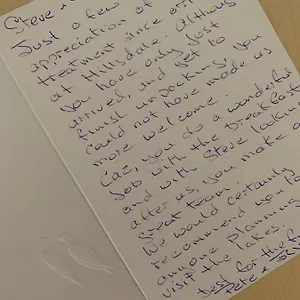 Steve
Just a few
appreciation of
treatment since
at Hillsdale. Although
you have only just
arrived, and yet to
finish unpacking, you
could not have made us
more welcome.
Caz, you do a wonderful
job with the breakfast
and with Steve looking
after us, you make a
great team.
We would certainly
recommend you to
anyone planning
visit the lakes.
Best for the
Pete